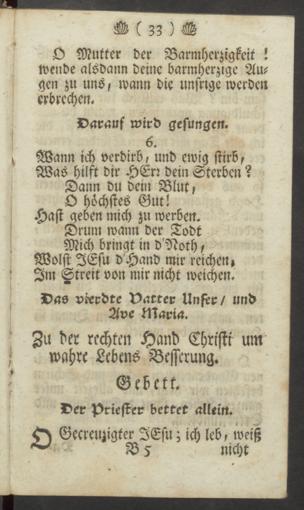 ( 33 )
O Mutter der Barmherzigkeit !
wende alsdann deine barmherzige Au-
gen zu uns, wann die unsrige werden
erbrechen.
Darauf wird gesungen.
6.
Wann ich verdirb, und ewig stirb,
Was hilft dir HErr dein Sterben?
Dann du dein Blut,
O höchstes Gut!
Hast geben mich zu werben.
Drum wann der Todt
Mich bringt in d'Noth,
Wolst JEsu d'Hand mir reichen,
Im Streit von mir nicht weichen.
Das vierdte Vatter Unser / und
Ave Maria.
Zu der rechten Hand Christi um
wahre Lebens Besserung.
Gebett.
Der Priester bettet allein.
O Gecreuzigter JEsu; ich leb, weiß
B 5 nicht